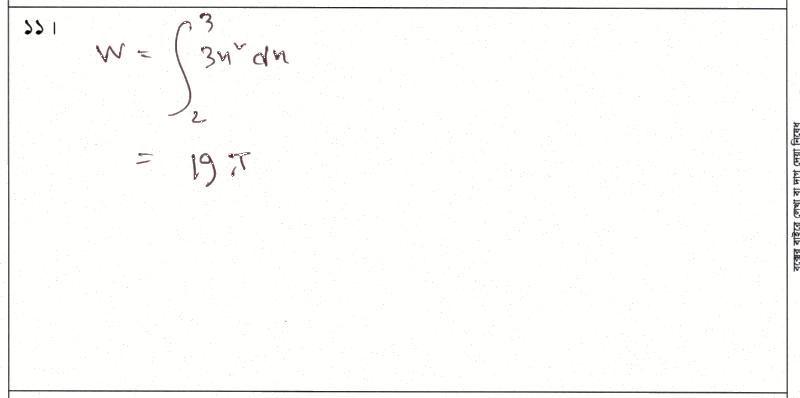 ১১।
W = ∫₂³ 3x² dx
= 19 J
বক্সের বাইরে লেখা বা দাগ দেয়া নিষেধ